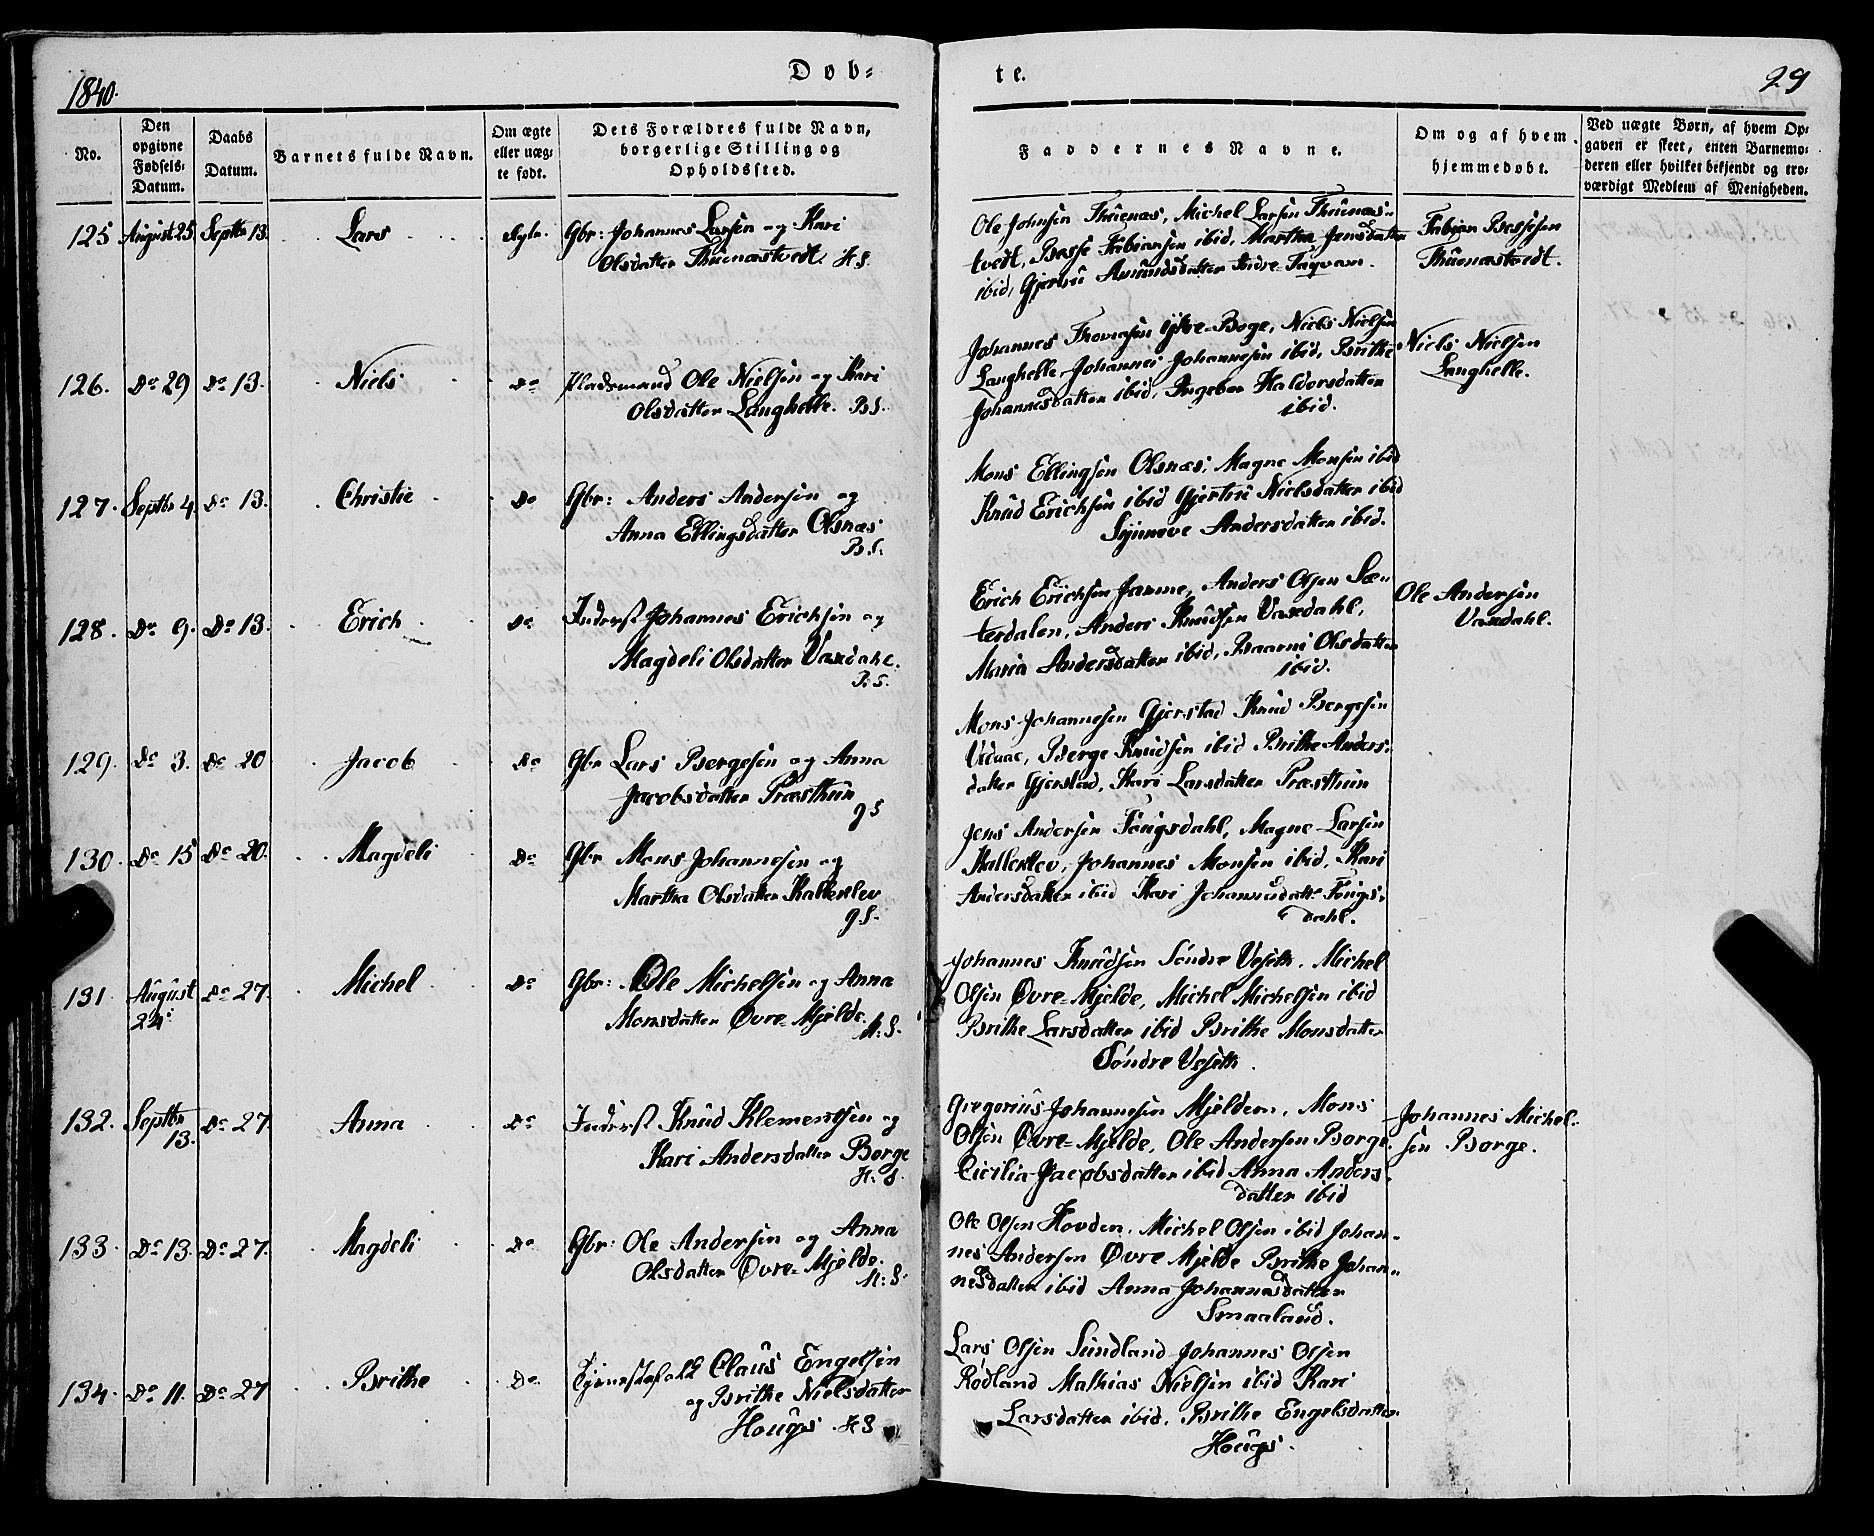 1840.
Døb-
te.
29
No.
Den
opgivne
Fødsels-
Datum.
Daabs
Datum.
Barnets fulde Navn.
Om ægte
eller uæg-
te født.
Dets Forældres fulde Navn,
borgerlige Stilling og
Opholdssted.
Faddernes Navne.
Om og af hvem
hjemmedøbt.
Ved uægte Børn, af hvem Op-
gaven er skeet, enten Barnemo-
deren eller hvilket bekjendt og tro-
værdigt Medlem af Menigheden.
125 August 25 Septbr 13. Lars
Gbr: Johannes Larsen og Kari
Olsdatter Thuenæstvedt. H S.
Ole Johnsen Thuenæs, Michel Larsen Thuenæs-
tvedt, Basse Fabiansen ibid, Martha Jensdatter
ibid, Gjertru Amundsdatter Indre-
Fabian Bassesen
Thuenæstvedt.
126. Do 29 Do 13. Niels Do
Pladsmand Ole Nielsen og Kari
Olsdatter Langhelle. B S.
Johannes Thomesen Boge, Niels Nielsen
Langhelle Johannes Johannesen ibid, Brithe
Johannesdatter ibid, Ingebor Haldorsdatter
ibid.
Niels Nielsen
Langhelle.
127. Septbr 4. Do 13. Christie Do
Gbr: Anders Andersen og
Anna Ellingsdatter Olsnæs
B S.
Mons Ellingsen Olsnæs, Magne Monsen ibid
Knud Erichsen ibid Gjertru Nielsdatter ibid
Synneve Andersdatter ibid.
128. Do 9. Do 13. Erich Do
Inderst Johannes Erichsen og
Magdeli Olsdatter Vaxdahl.
B: S.
Erich Erichsen Jamne, Anders Olsen Sæ-
terdalen, Anders Knudsen Vaxdahl,
Maria Andersdatter ibid, Olsdatter
ibid.
Ole Andersen
Vaxdahl.
129. Do 3. Do 20 Jacob Do
Gbr Lars Bergesen og Anna
Jacobsdatter Præsthun
G S
Mons Johannesen Gjerstad Knud Bergesen
Vidnæs, Berge Knudsen ibid Brithe Anders-
datter Gjerstad, Kari Larsdatter Præsthun
130. Do 15 Do 20. Magdeli Do
Gbr Mons Johannesen og
Martha Olsdatter Kalleklev
G S.
Jens Andersen Fougsdahl, Magne Larsen
Kalleklev, Johannes Monsen ibid, Kari
Andersdatter ibid Kari Johannesdatt. Fougs-
dahl.
131 August
24 Do 27. Michel Do
Gbr: Ole Michelsen og Anna
Monsdatter Øvre-Mjelde.
M: S.
Johannes Knudsen Søndre Veseth. Michel
Olsen Øvre-Mjelde, Michel Michelsen ibid
Brithe Larsdatter ibid Brithe Monsdatter
Søndre Veseth.
132. Septbr
13. Do 27. Anna Do
Inderst Knud Klementsen og
Kari Andersdatter Borge
H. S.
Gregorius Johannesen Mjelderen, Mons
Olsen Øvre-Mjelde, Ole Andersen Borge
Cicilia Jacobsdatter ibid Anna Anders-
datter ibid
Johannes Michel-
sen Borge.
133. Do 13. Do 27. Magdeli Do
Gbr: Ole Andersen og Anna
Olsdatter Øvre-Mjelde.
M: S.
Ole Olsen Hovden, Michel Olsen ibid Johan-
nes Andersen Øvre Mjelde Brithe Johan-
nesdatter ibid Anna Johannesdatter
Smaaland.
134. Do 11. Do 27 Brithe Do
Tjenestefolk Claus Engelsen
og Brithe Nielsdatter
Hougs. H S
Lars Olsen Sundland Johannes Olsen
Rødland Mathias Nielsen ibid Kari
Larsdatter ibid. Brithe Engelsdatter
Hougs.